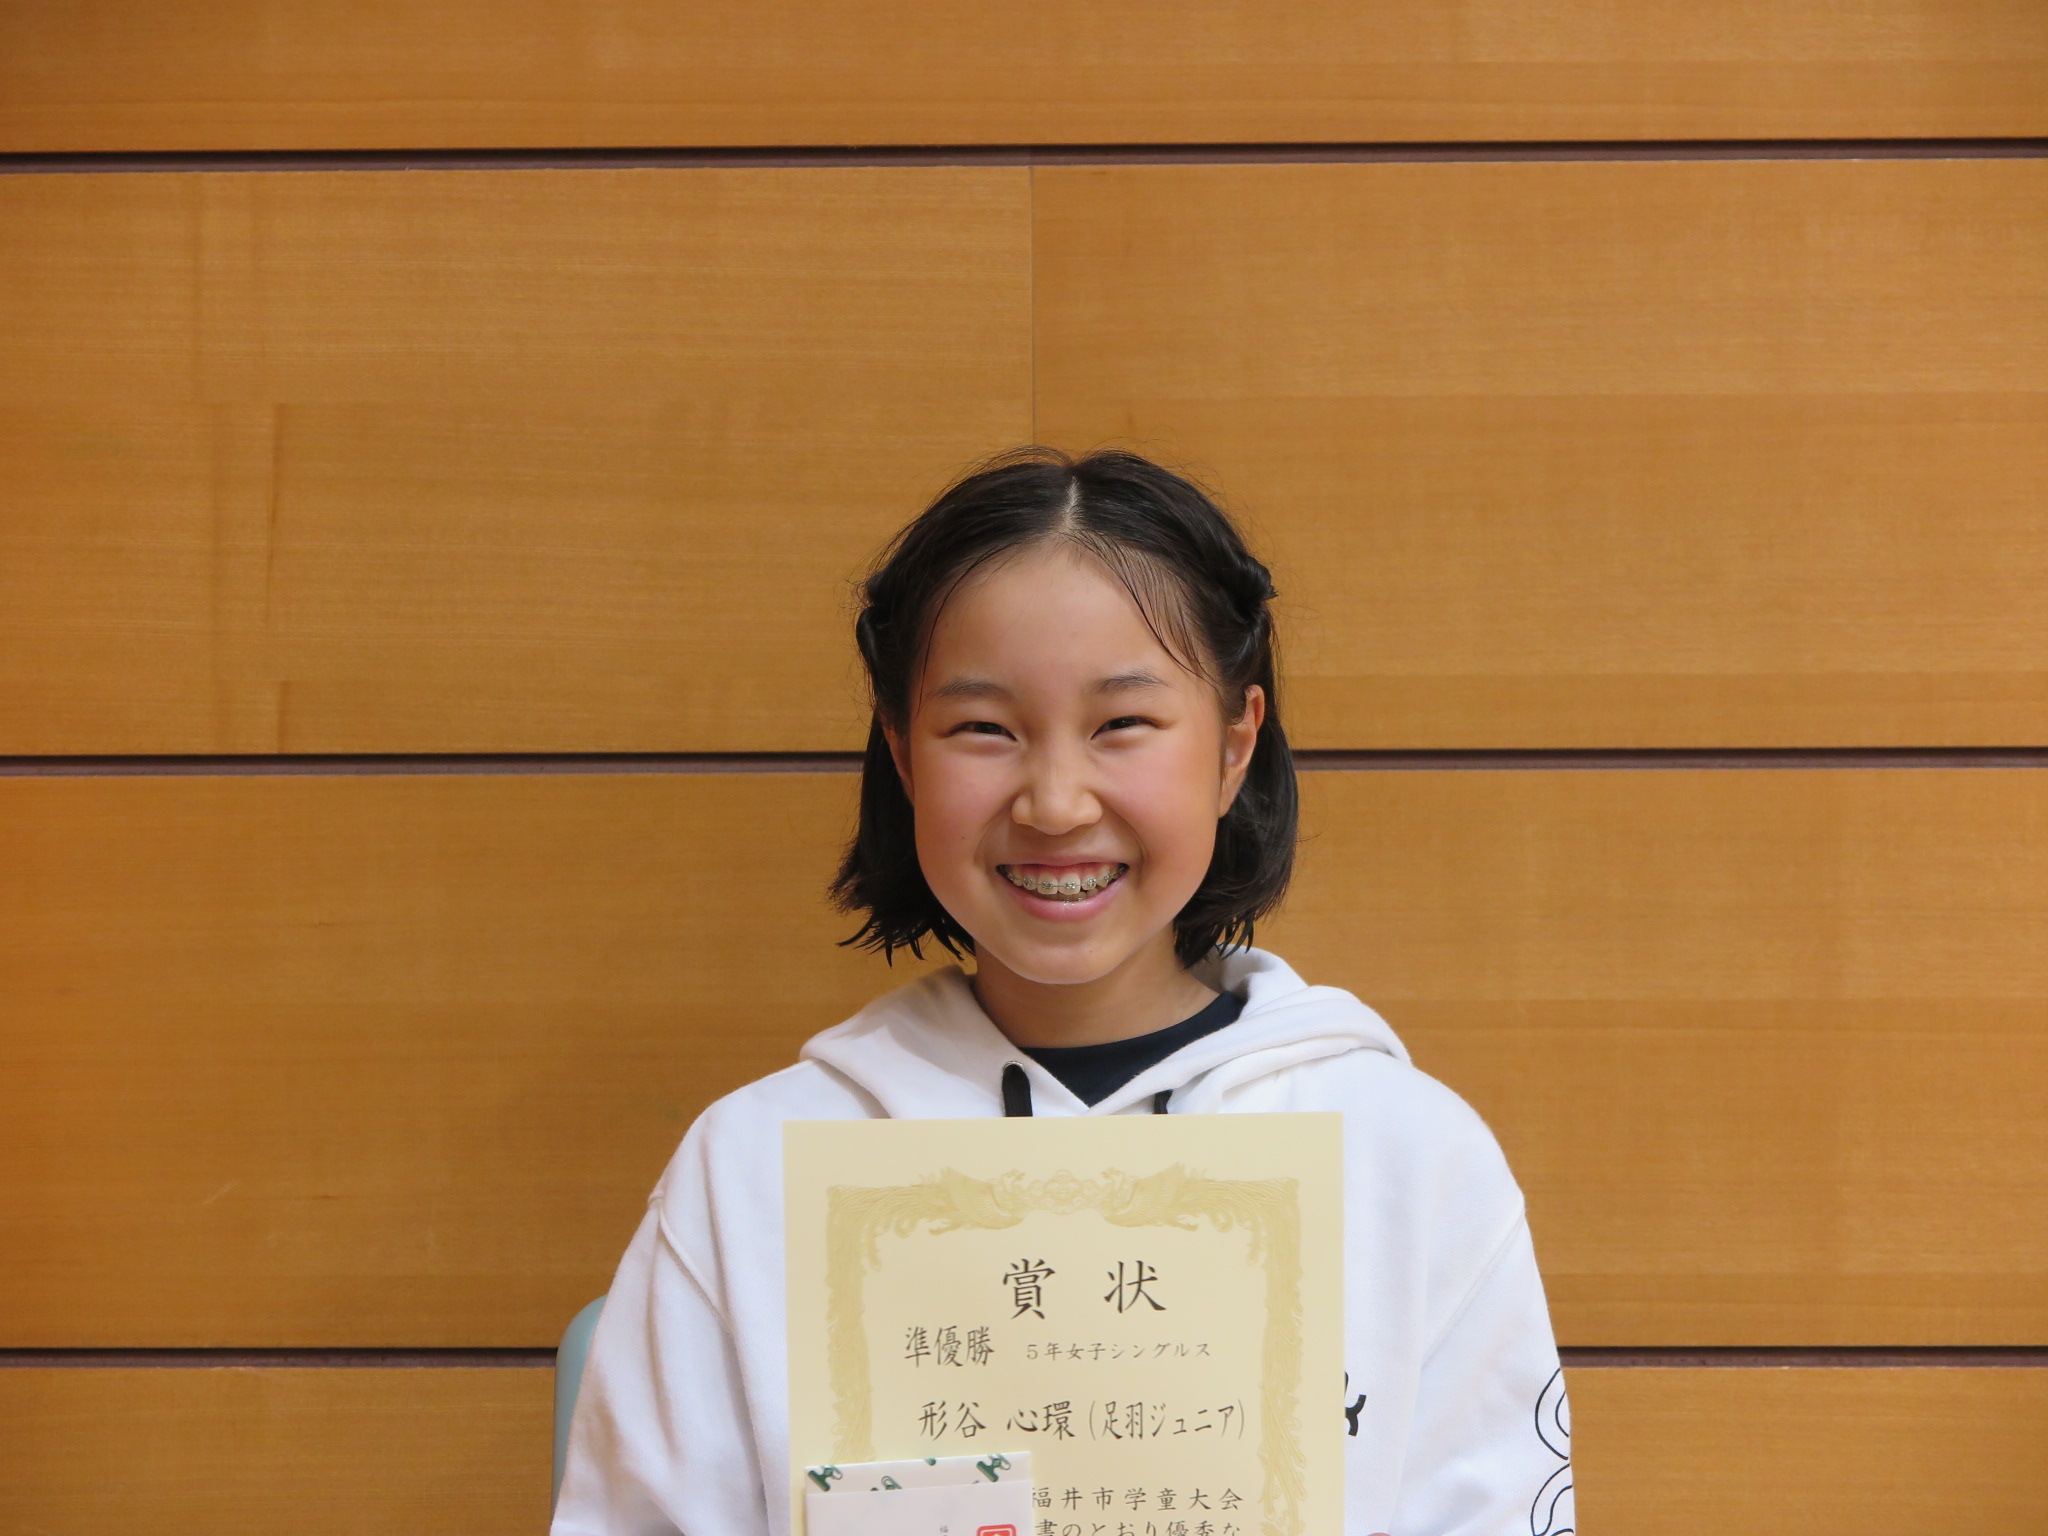 賞状
準優勝 5年女子シングルス
形谷 心環(足羽ジュニア)
福井市学童大会
書のとおり優秀な
福